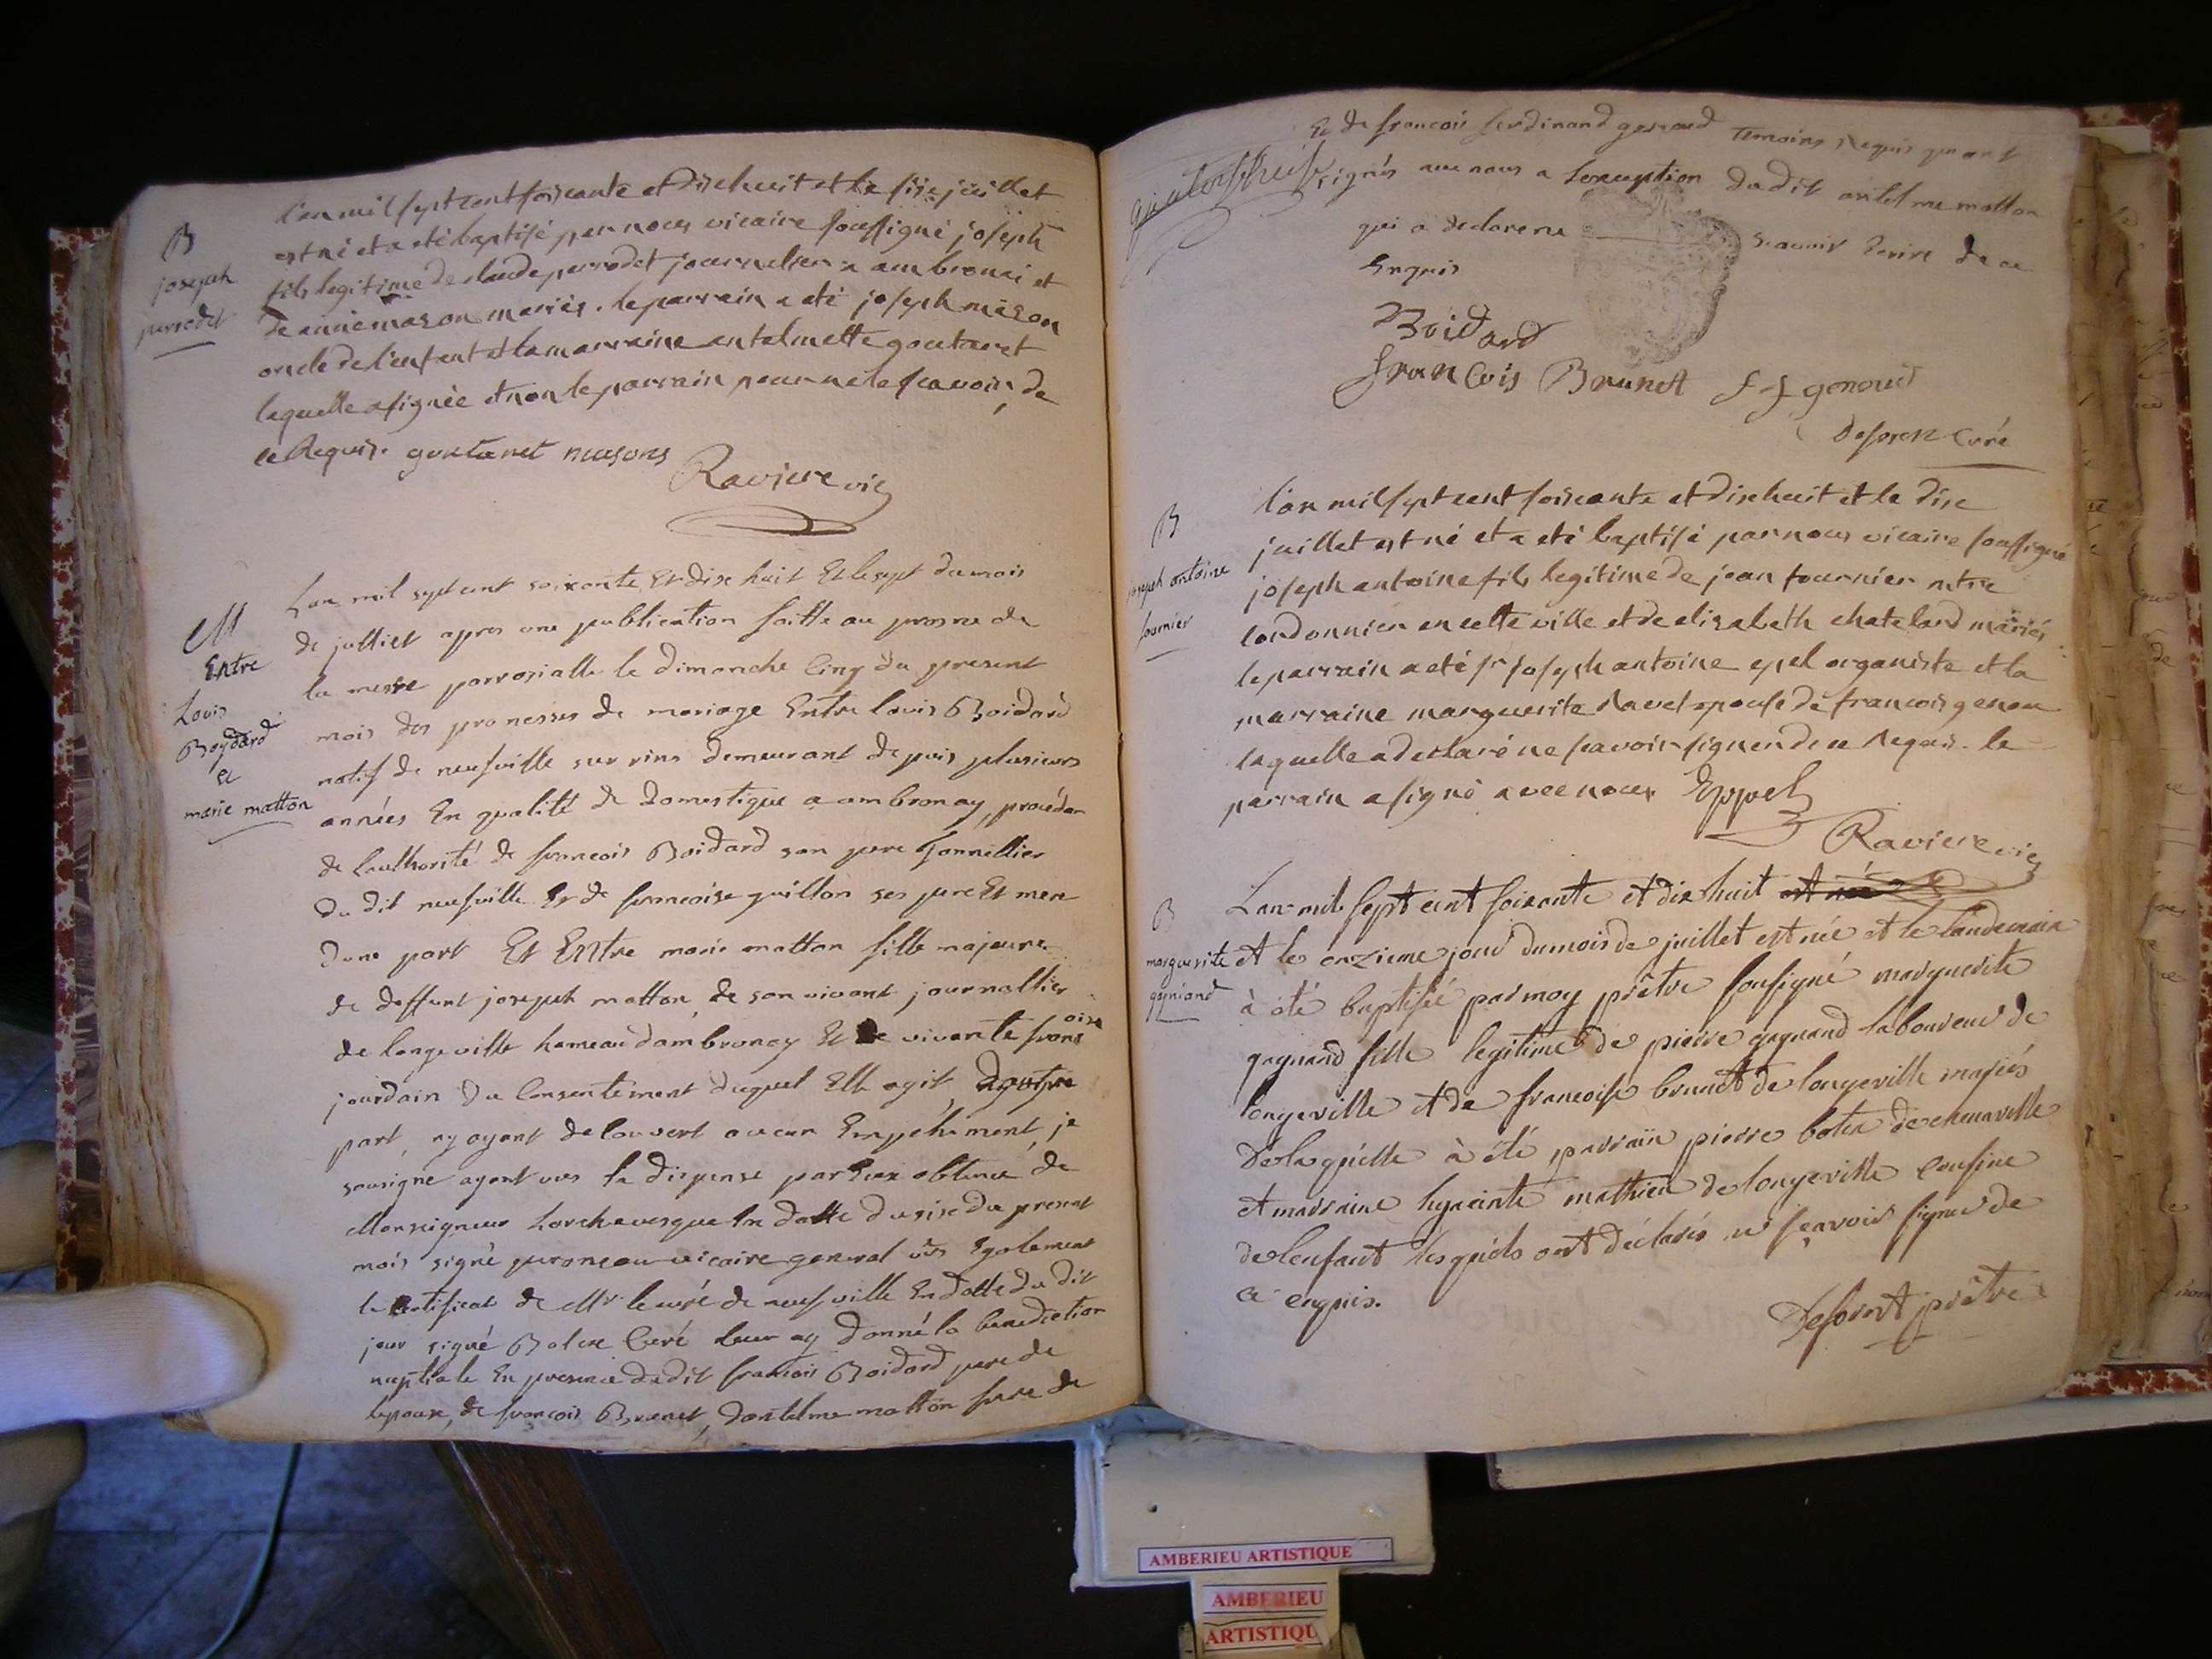 B
joseph
perrodet
l'an mil sept cent soixante et dixhuit et le six juillet
est né et a eté baptisé par nous vicaire soussigné joseph
fils legitime de claude perrodet journalier a ambronai et
de annie mason mariés. le parrain a eté joseph mason
oncle de l'enfant et la marraine antelmette goutanet
laquelle a signée et non le parrain pour ne le scavoir, de
ce Requis. goutanet masons
Raviere vic
M
Entre
Louis
Boydard
Et
marie matton
Lan mil sept cent soixante Et dix huit Et le sept du mois
de julliet apres une publication faitte au prosne de
la messe parrosialle le dimanche Cinq du present
mois des promesses de mariage Entre louis Boidard
natif de neufville sur rins demeurant depuis plusieurs
années En qualité de domestique a ambronay, procédan
de lauthorité de francois Boidard son pere Tonnellier
du dit neufville Et de francoise guillon ses pere Et mere
dune part Et Entre marie matton fille majeure
de deffunt joseph matton, de son vivant journallier
de longeville hameau dambronay Et de vivante francoise
jourdain du Consentement duquel Elle agit, dautre
part, ny ayant decouvert aucun Empéchement, je
sousigne ayant vus la dispense par Eux obtenue de
Monseigneur Larchevesque En datte du six du present
mois signé vicaire general vüs Egalement
le certificat de Mr le curé de neufville En datte du dit
jour signé Curé leur ay donné la benediction
nuptiale En presence du dit francois Boidard pere de
lepoux, de francois Brunet, dantelme matton frere de
Et de francois ferdinand Temoins Requis qui ont
signés avec nous a Lexeuption du dit antelme matton
qui a declare ne scavoir Ecrire de ce
Enquis
Boidard
francois Brunet f f genoud
Curé
B
joseph antoine
fournier
l'an mil sept cent soixante et dixhuit et le dix
juillet est né et a eté baptisé par nous vicaire soussigné
joseph antoine fils legitime de jean fournier mtre
cordonnier en cette ville et de elisabeth chateland mariés
le parrain a eté sr joseph antoine epel organiste et la
marraine marguerite Navet epouse de francois genou
laquelle a declaré ne scavoir signer de ce Requis. le
parrain a signé avec nous Eppel
Raviere vic
B
marguerite
gagniand
L'an mil sept cent soixante et dix huit est né
et le onzieme jour du mois de juillet est née et le landemain
à été baptisée par moy prêtre sousigné marguerite
gagnand fille legitime de pierre gagnand laboureur de
longeville et de francoise brunet de longeville mariés
De laquelle à été parrain pierre de
et marraine hyacinte mathieu de longeville cousine
de lenfant lesquels ont déclarés ne sçavoir signer de
ce enquis.
prêtre
AMBERIEU ARTISTIQUE
AMBERIEU
ARTISTIQU